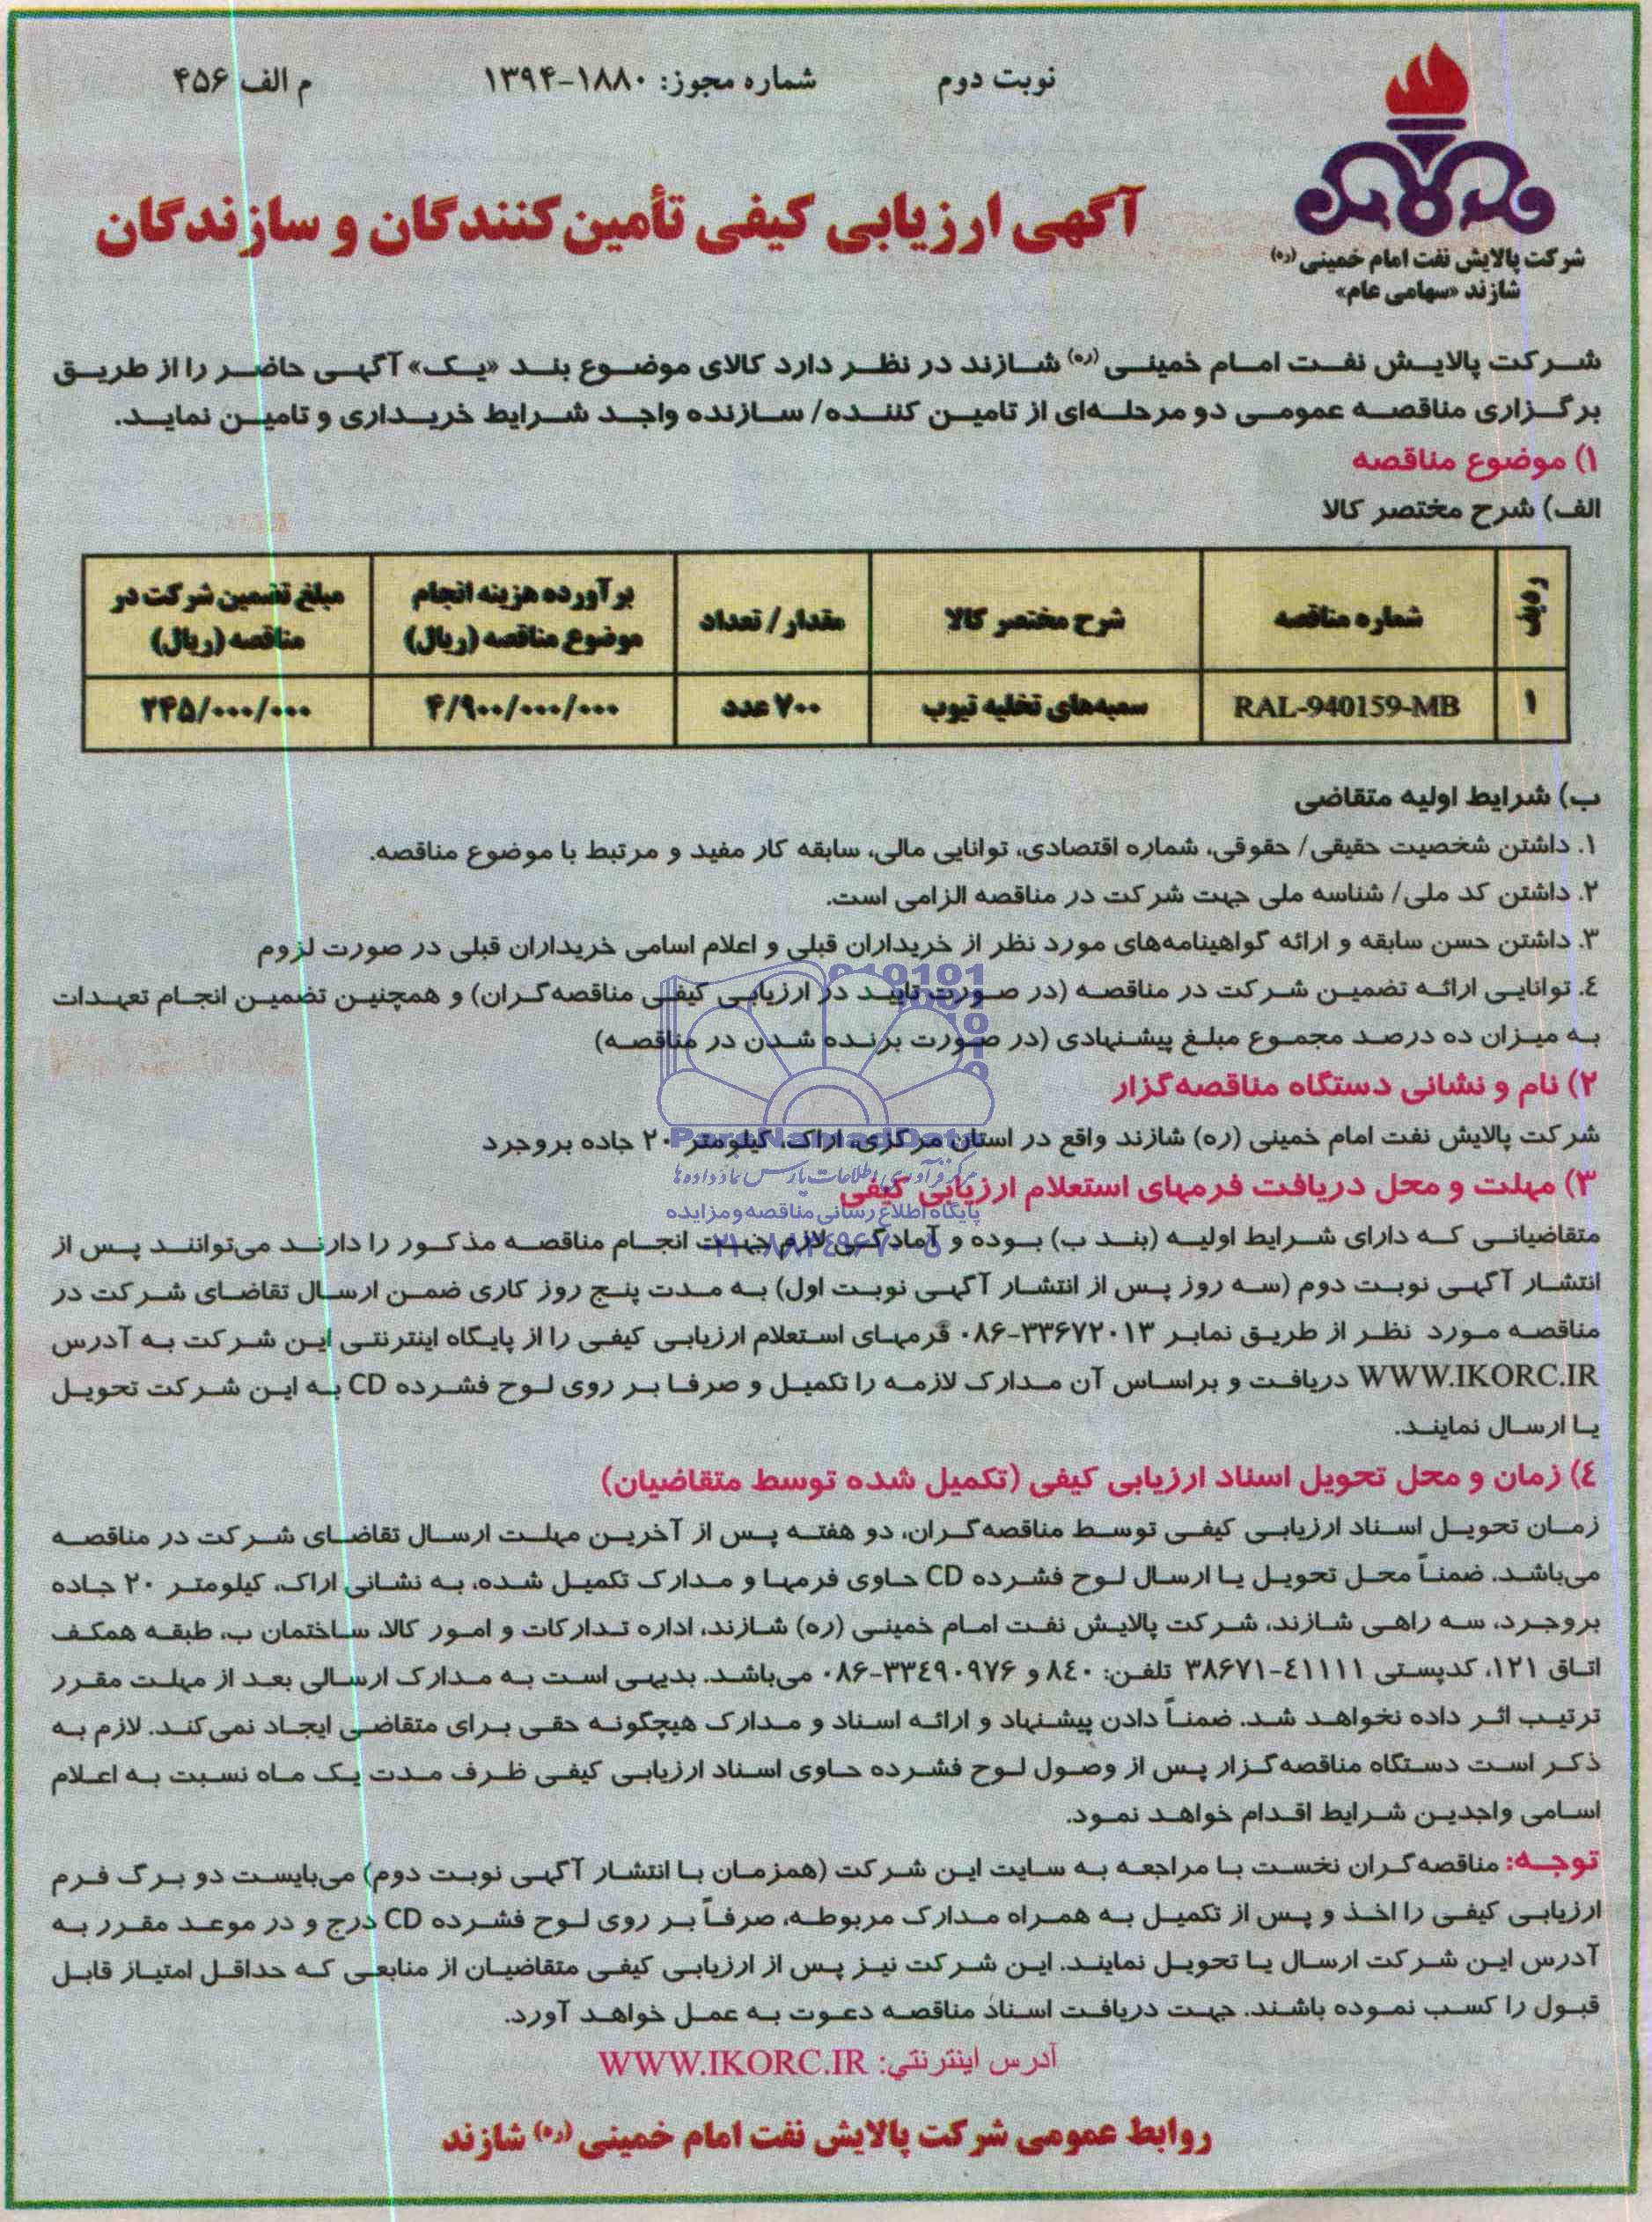 نوبت دوم
شماره مجوز: ۱۸۸۰-۱۳۹۴
م الف ۴۵۶
شرکت پالایش نفت امام خمینی (ره)
شازند «سهامی عام»
آگهی ارزیابی کیفی تأمین‌کنندگان و سازندگان
شرکت پالایش نفت امام خمینی (ره) شازند در نظر دارد کالای موضوع بند «یک» آگهی حاضر را از طریق
برگزاری مناقصه عمومی دو مرحله‌ای از تامین کننده/ سازنده واجد شرایط خریداری و تامین نماید.
۱) موضوع مناقصه
الف) شرح مختصر کالا
ردیف
شماره مناقصه
شرح مختصر کالا
مقدار/ تعداد
برآورده هزینه انجام
موضوع مناقصه (ریال)
مبلغ تضمین شرکت در
مناقصه (ریال)
۱
RAL-940159-MB
سمبه‌های تخلیه تیوپ
۷۰۰ عدد
۴/۹۰۰/۰۰۰/۰۰۰
۲۴۵/۰۰۰/۰۰۰
ب) شرایط اولیه متقاضی
۱. داشتن شخصیت حقیقی/ حقوقی، شماره اقتصادی، توانایی مالی، سابقه کار مفید و مرتبط با موضوع مناقصه.
۲. داشتن کد ملی/ شناسه ملی جهت شرکت در مناقصه الزامی است.
۳. داشتن حسن سابقه و ارائه گواهینامه‌های مورد نظر از خریداران قبلی و اعلام اسامی خریداران قبلی در صورت لزوم
٤. توانایی ارائه تضمین شرکت در مناقصه (در صورت تایید در ارزیابی کیفی مناقصه‌گران) و همچنین تضمین انجام تعهدات
به میزان ده درصد مجموع مبلغ پیشنهادی (در صورت برنده شدن در مناقصه)
۲) نام و نشانی دستگاه مناقصه‌گزار
شرکت پالایش نفت امام خمینی (ره) شازند واقع در استان مرکزی، اراک، کیلومتر ۲۰ جاده بروجرد
۳) مهلت و محل دریافت فرمهای استعلام ارزیابی کیفی
متقاضیانی که دارای شرایط اولیه (بند ب) بوده و آمادگی لازم جهت انجام مناقصه مذکور را دارند می‌توانند پس از
انتشار آگهی نوبت دوم (سه روز پس از انتشار آگهی نوبت اول) به مدت پنج روز کاری ضمن ارسال تقاضای شرکت در
مناقصه مورد نظر از طریق نمابر ۳۳۶۷۲۰۱۳-۰۸۶ فرمهای استعلام ارزیابی کیفی را از پایگاه اینترنتی این شرکت به آدرس
WWW.IKORC.IR دریافت و براساس آن مدارک لازمه را تکمیل و صرفا بر روی لوح فشرده CD به این شرکت تحویل
یا ارسال نمایند.
٤) زمان و محل تحویل اسناد ارزیابی کیفی (تکمیل شده توسط متقاضیان)
زمان تحویل اسناد ارزیابی کیفی توسط مناقصه‌گران، دو هفته پس از آخرین مهلت ارسال تقاضای شرکت در مناقصه
می‌باشد. ضمناً محل تحویل یا ارسال لوح فشرده CD حاوی فرمها و مدارک تکمیل شده، به نشانی اراک، کیلومتر ۲۰ جاده
بروجرد، سه راهی شازند، شرکت پالایش نفت امام خمینی (ره) شازند، اداره تدارکات و امور کالا، ساختمان ب، طبقه همکف
اتاق ۱۲۱، کدپستی ٤۱۱۱۱-۳۸۶۷۱ تلفن: ۸٤۰ و ۳۳٤۹۰۹۷۶-۰۸۶ می‌باشد. بدیهی است به مدارک ارسالی بعد از مهلت مقرر
ترتیب اثر داده نخواهد شد. ضمناً دادن پیشنهاد و ارائه اسناد و مدارک هیچگونه حقی برای متقاضی ایجاد نمی‌کند. لازم به
ذکر است دستگاه مناقصه‌گزار پس از وصول لوح فشرده حاوی اسناد ارزیابی کیفی ظرف مدت یک ماه نسبت به اعلام
اسامی واجدین شرایط اقدام خواهد نمود.
توجه: مناقصه‌گران نخست با مراجعه به سایت این شرکت (همزمان با انتشار آگهی نوبت دوم) می‌بایست دو برگ فرم
ارزیابی کیفی را اخذ و پس از تکمیل به همراه مدارک مربوطه، صرفاً بر روی لوح فشرده CD درج و در موعد مقرر به
آدرس این شرکت ارسال یا تحویل نمایند. این شرکت نیز پس از ارزیابی کیفی متقاضیان از منابعی که حداقل امتیاز قابل
قبول را کسب نموده باشند. جهت دریافت اسناد مناقصه دعوت به عمل خواهد آورد.
آدرس اینترنتي: WWW.IKORC.IR
روابط عمومی شرکت پالایش نفت امام خمینی (ره) شازند
پایگاه اطلاع رسانی مناقصه و مزایده